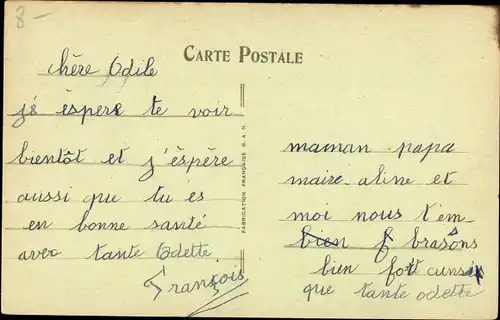 8-
CARTE POSTALE
chère Odile
j'éspere te voir
bientôt et j'éspère
aussi que tu es
en bonne santé
avec tante Odette
François
FABRICATION FRANÇAISE
maman papa
maire-aline et
moi nous t'em
bien brasôns
bien fort cunsi
que tante odette